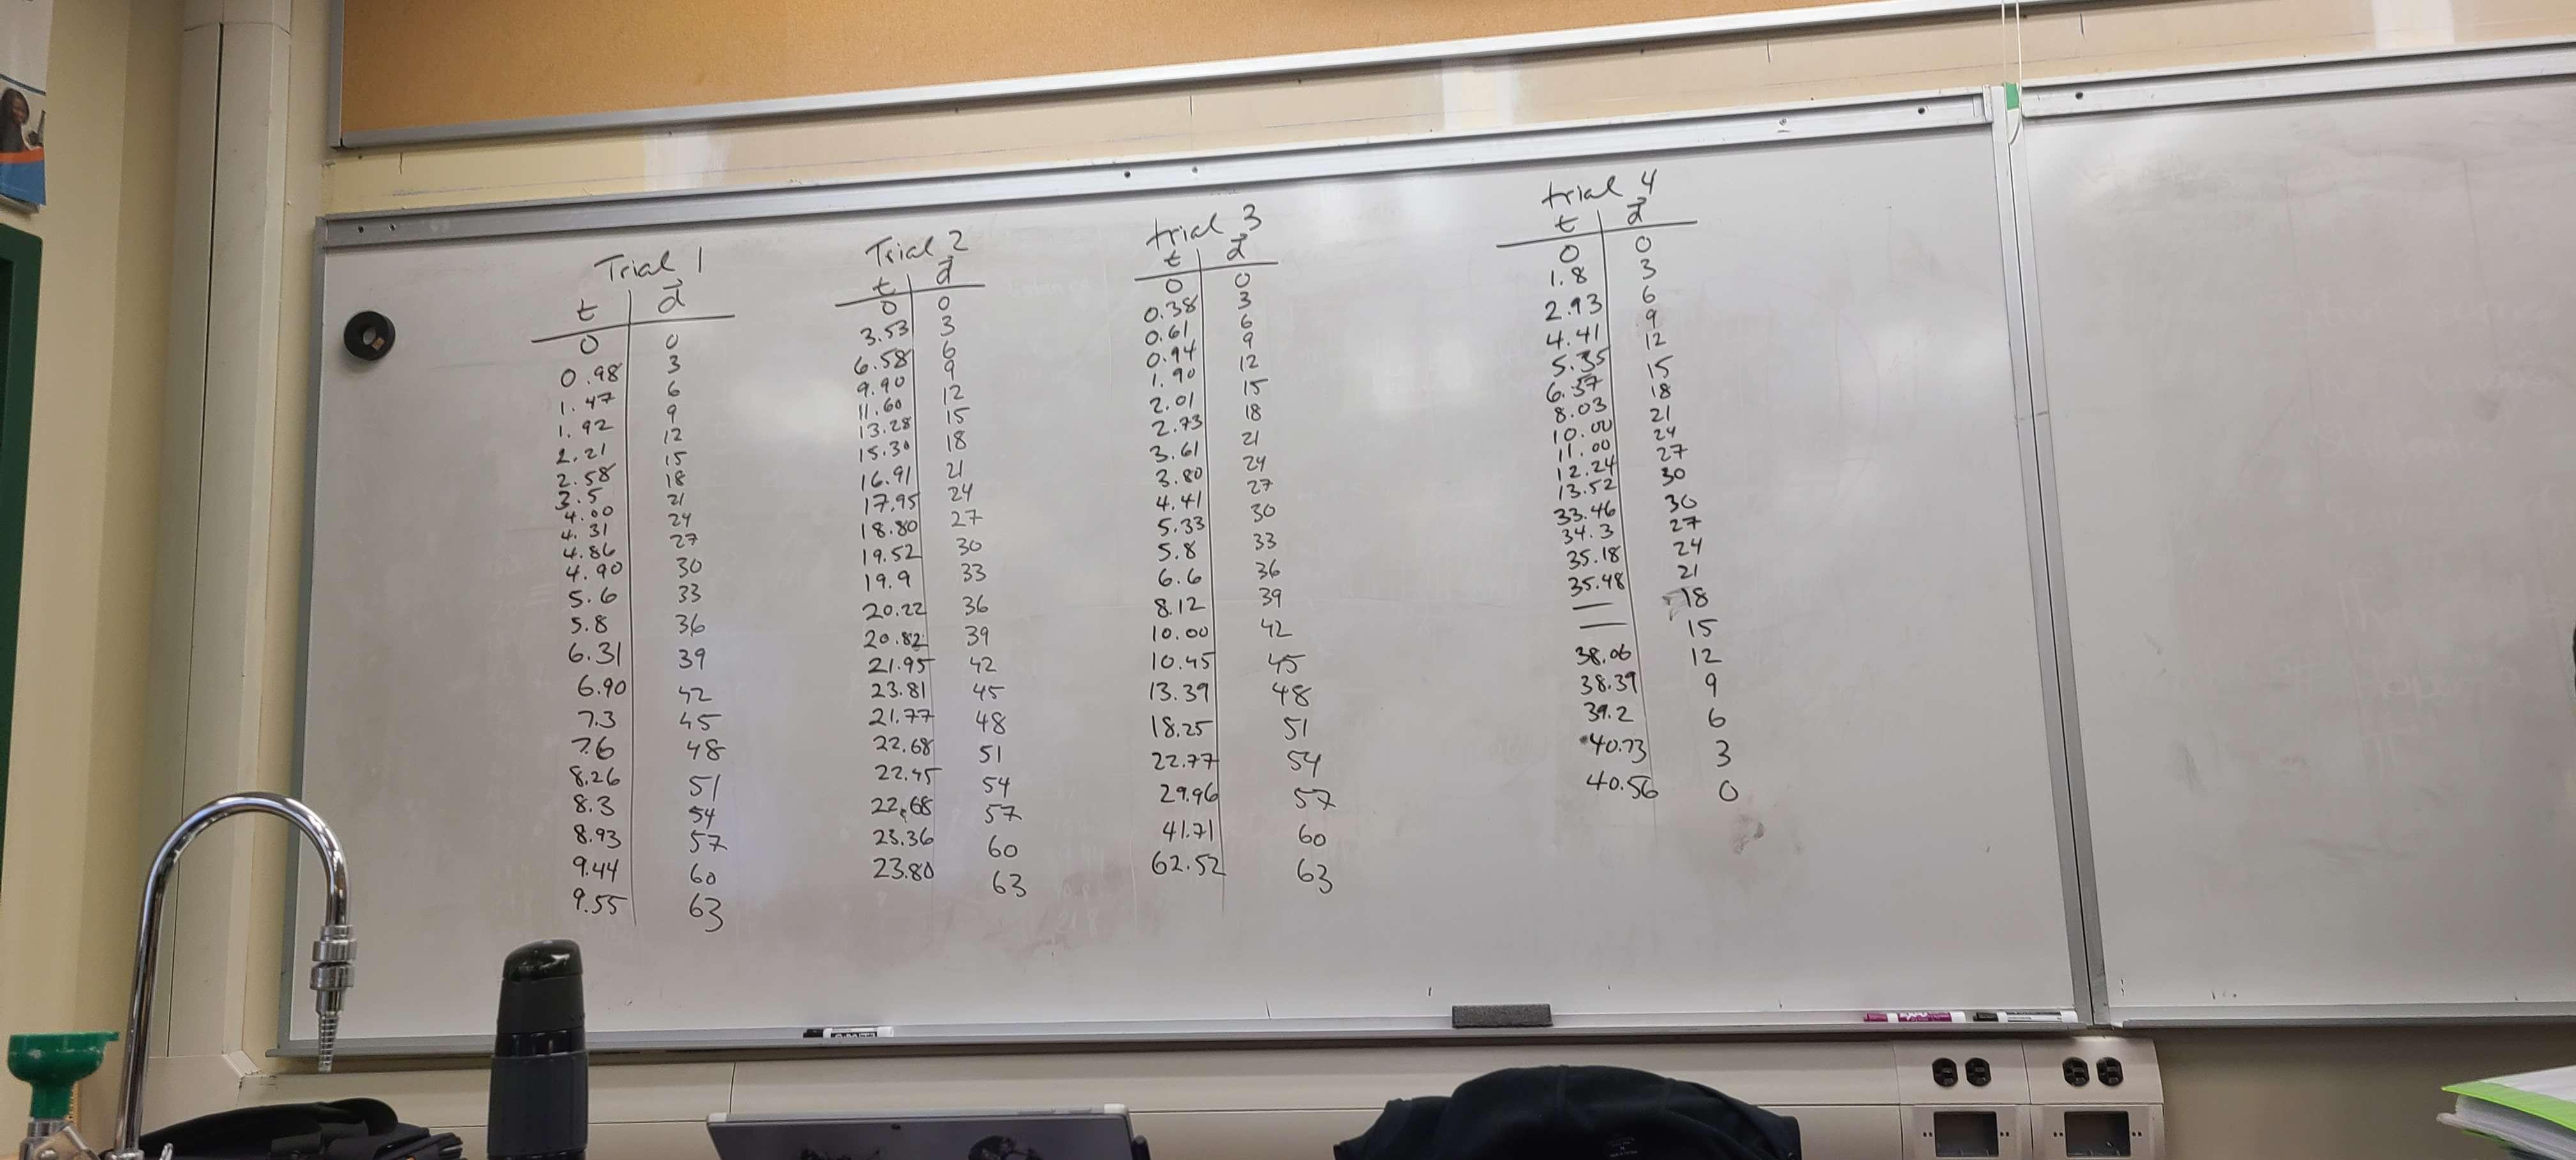 Trial 1
t d⃗
0 0
0.98 3
1.47 6
1.92 9
2.21 12
2.58 15
3.5 18
4.00 21
4.31 24
4.86 27
4.90 30
5.6 33
5.8 36
6.31 39
6.90 42
7.3 45
7.6 48
8.26 51
8.3 54
8.93 57
9.44 60
9.55 63
Trial 2
t d⃗
0 0
3.53 3
6.58 6
9.90 9
11.60 12
13.28 15
15.30 18
16.91 21
17.95 24
18.80 27
19.52 30
19.9 33
20.22 36
20.82 39
21.95 42
23.81 45
21.77 48
22.68 51
22.45 54
22.68 57
23.36 60
23.80 63
trial 3
t d⃗
0 0
0.38 3
0.61 6
0.94 9
1.90 12
2.01 15
2.73 18
3.61 21
3.80 24
4.41 27
5.33 30
5.8 33
6.6 36
8.12 39
10.00 42
10.45 45
13.39 48
18.25 51
22.77 54
29.96 57
41.71 60
62.52 63
trial 4
t d⃗
0 0
1.8 3
2.93 6
4.41 9
5.35 12
6.37 15
8.03 18
10.00 21
11.00 24
12.24 27
13.52 30
33.46 30
34.3 27
35.18 24
35.48 21
— 18
— 15
38.06 12
38.39 9
39.2 6
40.73 3
40.56 0